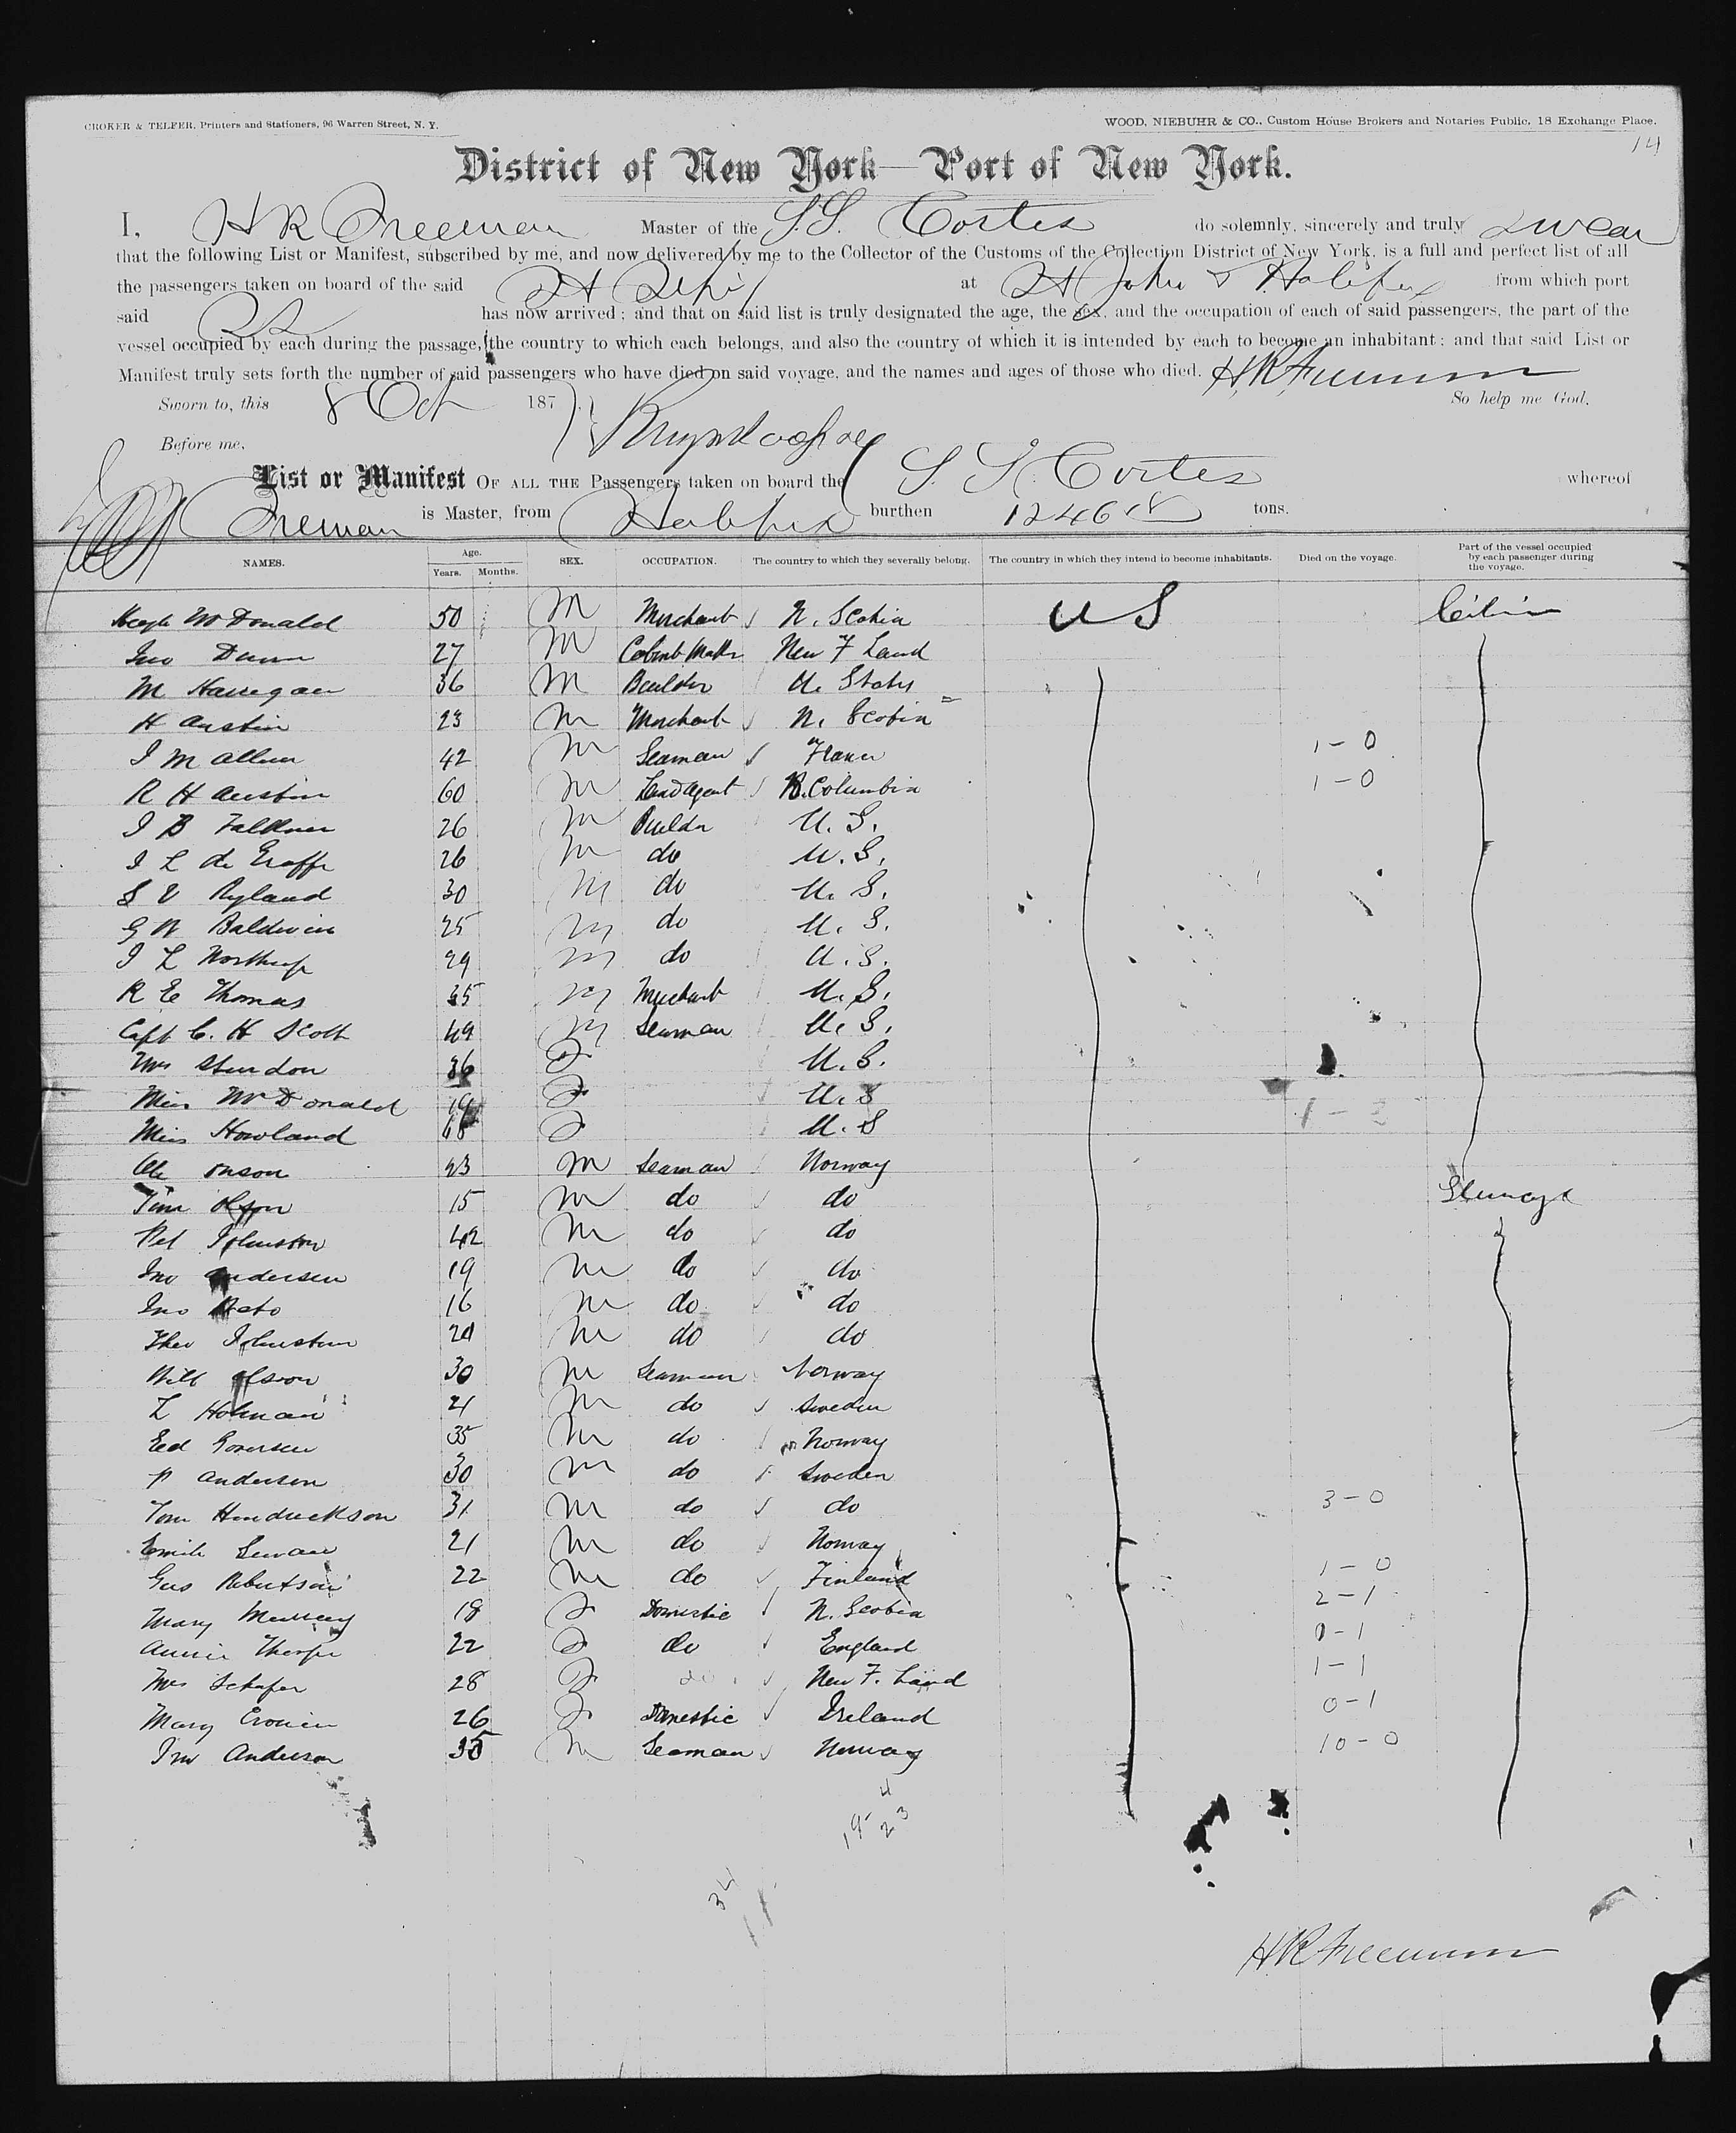 CROKER & TELFER, Printers and Stationers, 96 Warren Street, N. Y.
WOOD, NIEBUHR & CO., Custom House Brokers and Notaries Public, 18 Exchange Place.
14
District of New York—Port of New York.
I, H R Freeman Master of the S.S. Cortes do solemnly, sincerely and truly swear
that the following List or Manifest, subscribed by me, and now delivered by me to the Collector of the Customs of the Collection District of New York, is a full and perfect list of all
the passengers taken on board of the said at St Johns & Halifax from which port
said has now arrived; and that on said list is truly designated the age, the sex, and the occupation of each of said passengers, the part of the
vessel occupied by each during the passage, the country to which each belongs, and also the country of which it is intended by each to become an inhabitant; and that said List or
Manifest truly sets forth the number of said passengers who have died on said voyage, and the names and ages of those who died. H.R. Freeman
Sworn to, this 8 Oct 187 So help me God.
Before me,
List or Manifest OF ALL THE Passengers taken on board the S. S. Cortes whereof
Freeman is Master, from Halifax burthen 1246 tons.
NAMES. Age. Years. Months. SEX. OCCUPATION. The country to which they severally belong. The country in which they intend to become inhabitants. Died on the voyage. Part of the vessel occupied by each passenger during the voyage.
Hugh McDonald 50 M Merchant N. Scotia U S Cabin
Jno Dunn 27 M Cabinet Makr New F Land
M Hanegan 36 M Builder U. States
H Austin 23 M Merchant N. Scotia
J M Allen 42 M Seaman France 1-0
R H Austin 60 M Land Agent B. Columbia 1-0
J B Falkner 26 M Buildr U. S.
J L de Graffe 26 M do U. S.
S V Ryland 30 M do U. S.
G W Baldwin 25 M do U. S.
J L Northup 29 M do U. S.
R E Thomas 35 M Merchant U. S.
Capt C. H Scott 49 M Seaman U. S.
Mrs Sturdon 36 F U. S.
Miss McDonald 19 F U. S
Miss Howland 48 F U. S
Ole onson 23 M Seaman Norway Steerage
Tim Olson 15 M do do
Pet Johnston 42 M do do
Jno Andersen 19 M do do
Jno 16 M do do
Theo Johnston 20 M do do
Will Olsson 30 M Seaman Norway
L Holman 21 M do Sweden
Ed 35 M do Norway
P Andersen 30 M do Sweden
Tom Hendrickson 31 M do do 3-0
Emile Swan 21 M do Norway
Gus Robertson 22 M do Finland 1-0
Mary Murray 18 F Domestic N. Scotia 2-1
Annie Thorpe 22 F do England 0-1
Mrs Schafer 28 F do New F. Land 1-1
Mary Cronin 26 F Domestic Ireland 0-1
Jno Anderson 35 M Seaman Norway 10-0
4
19 23
34
H R Freeman